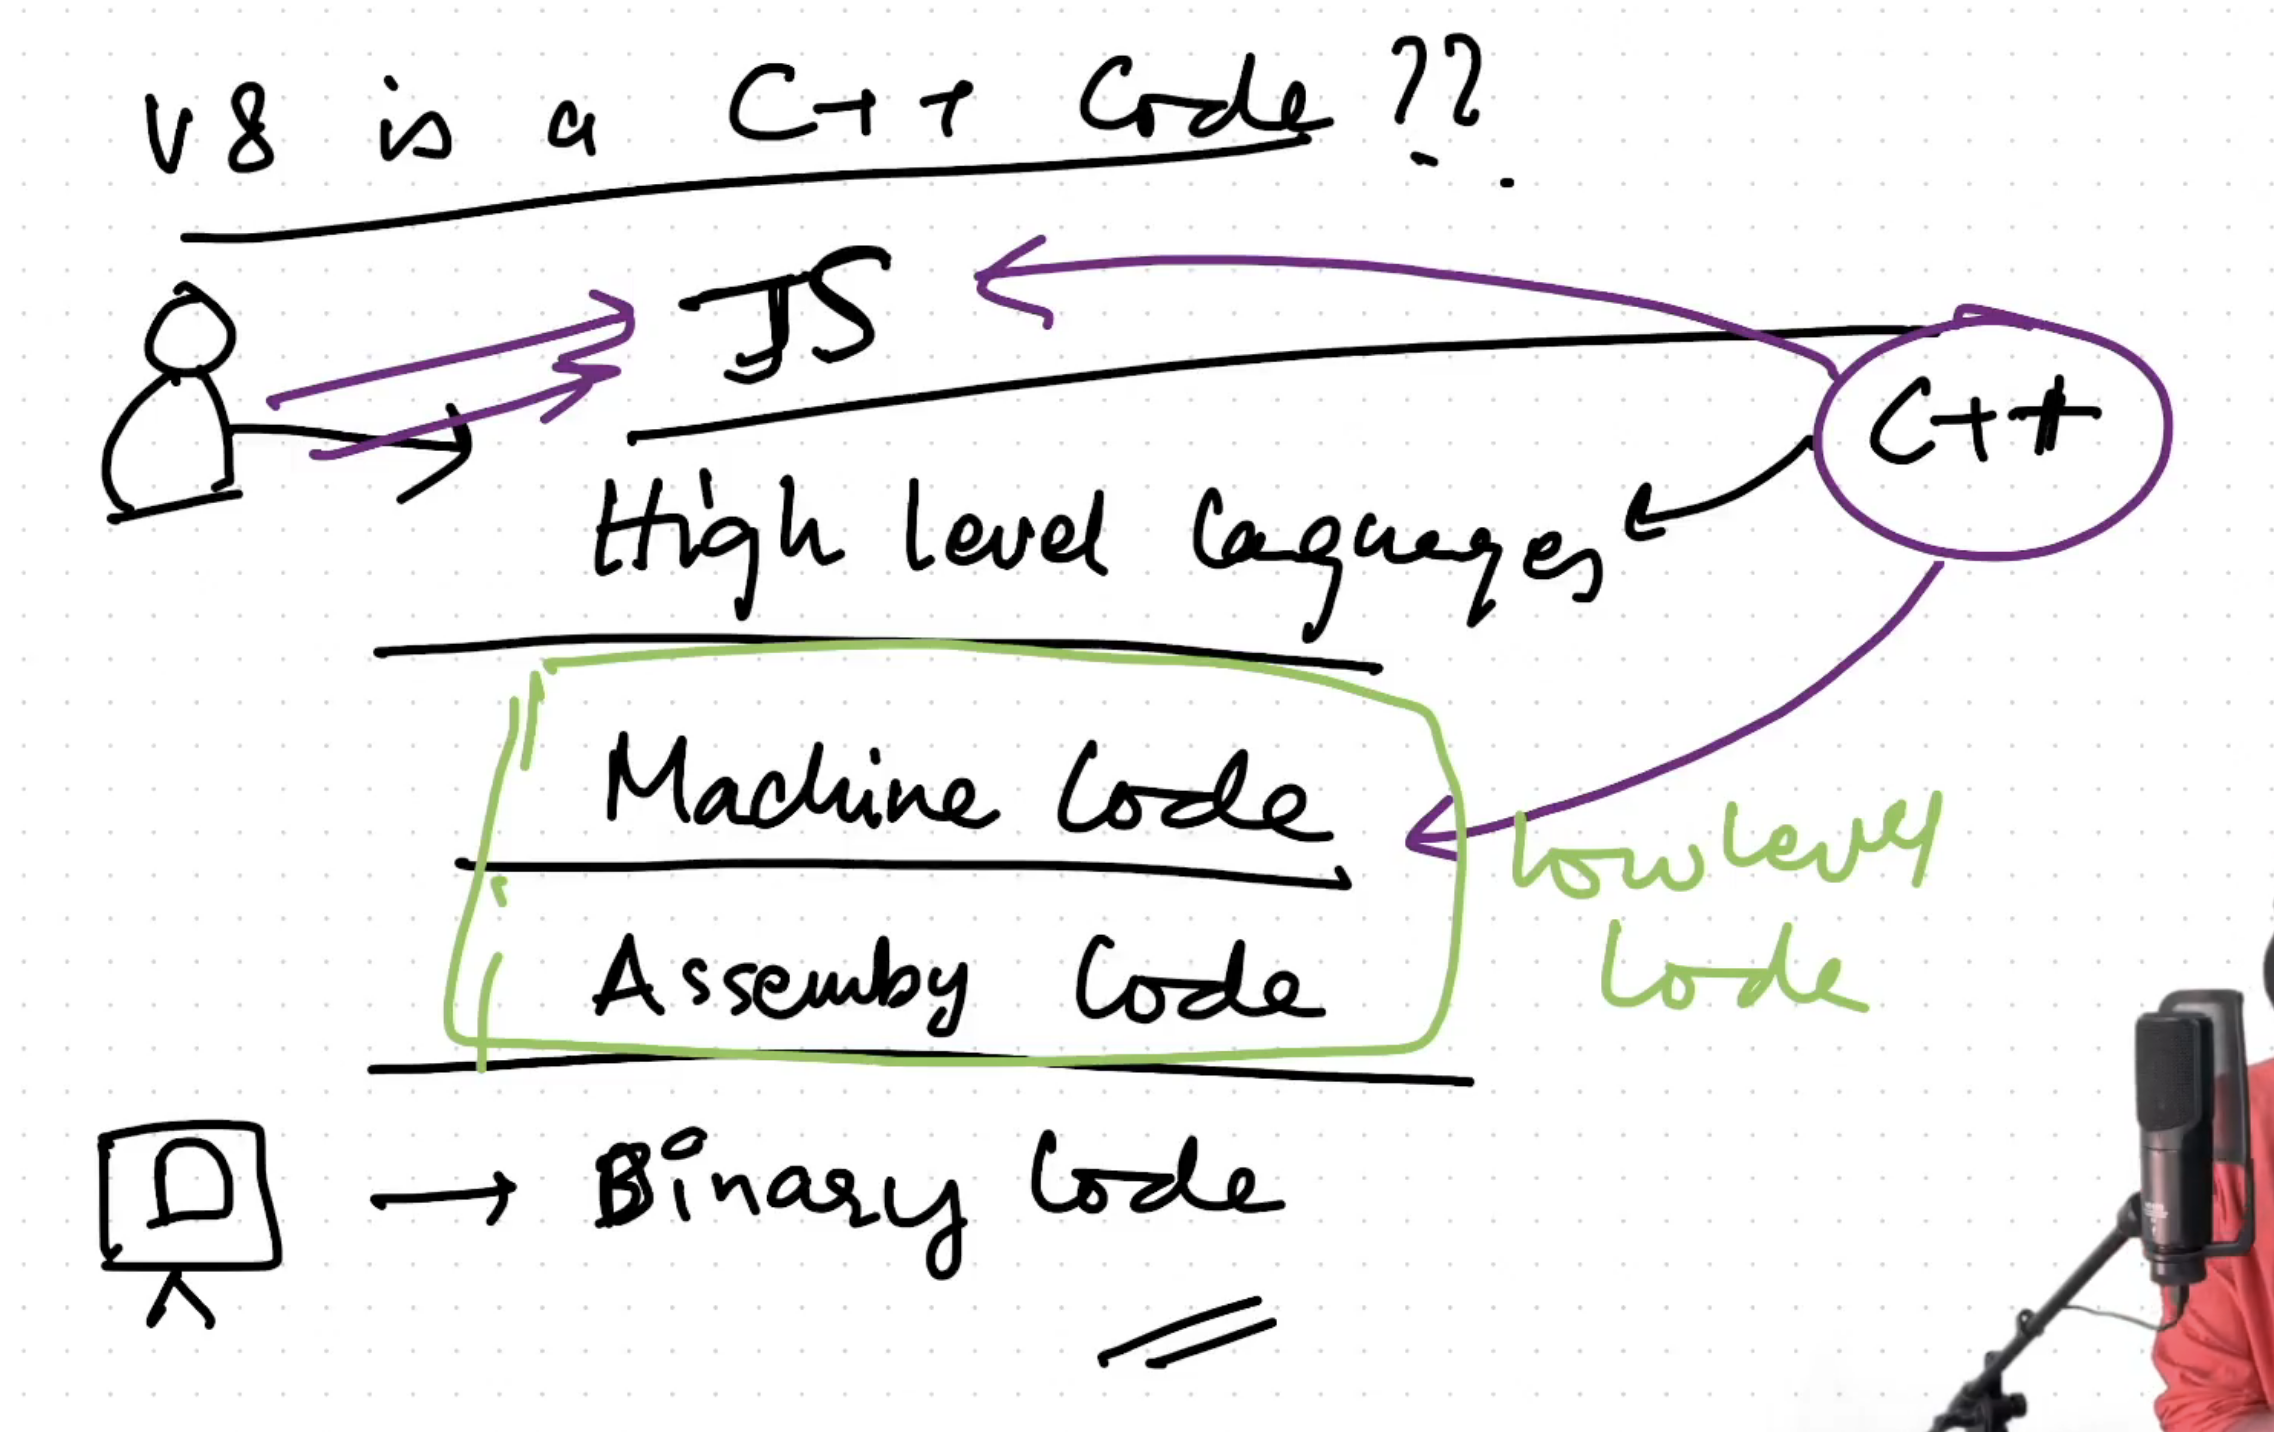 V8 is a C++ Code ??
JS
C++
High level Languages
Machine Code
Low level
Code
Assemby Code
Binary Code